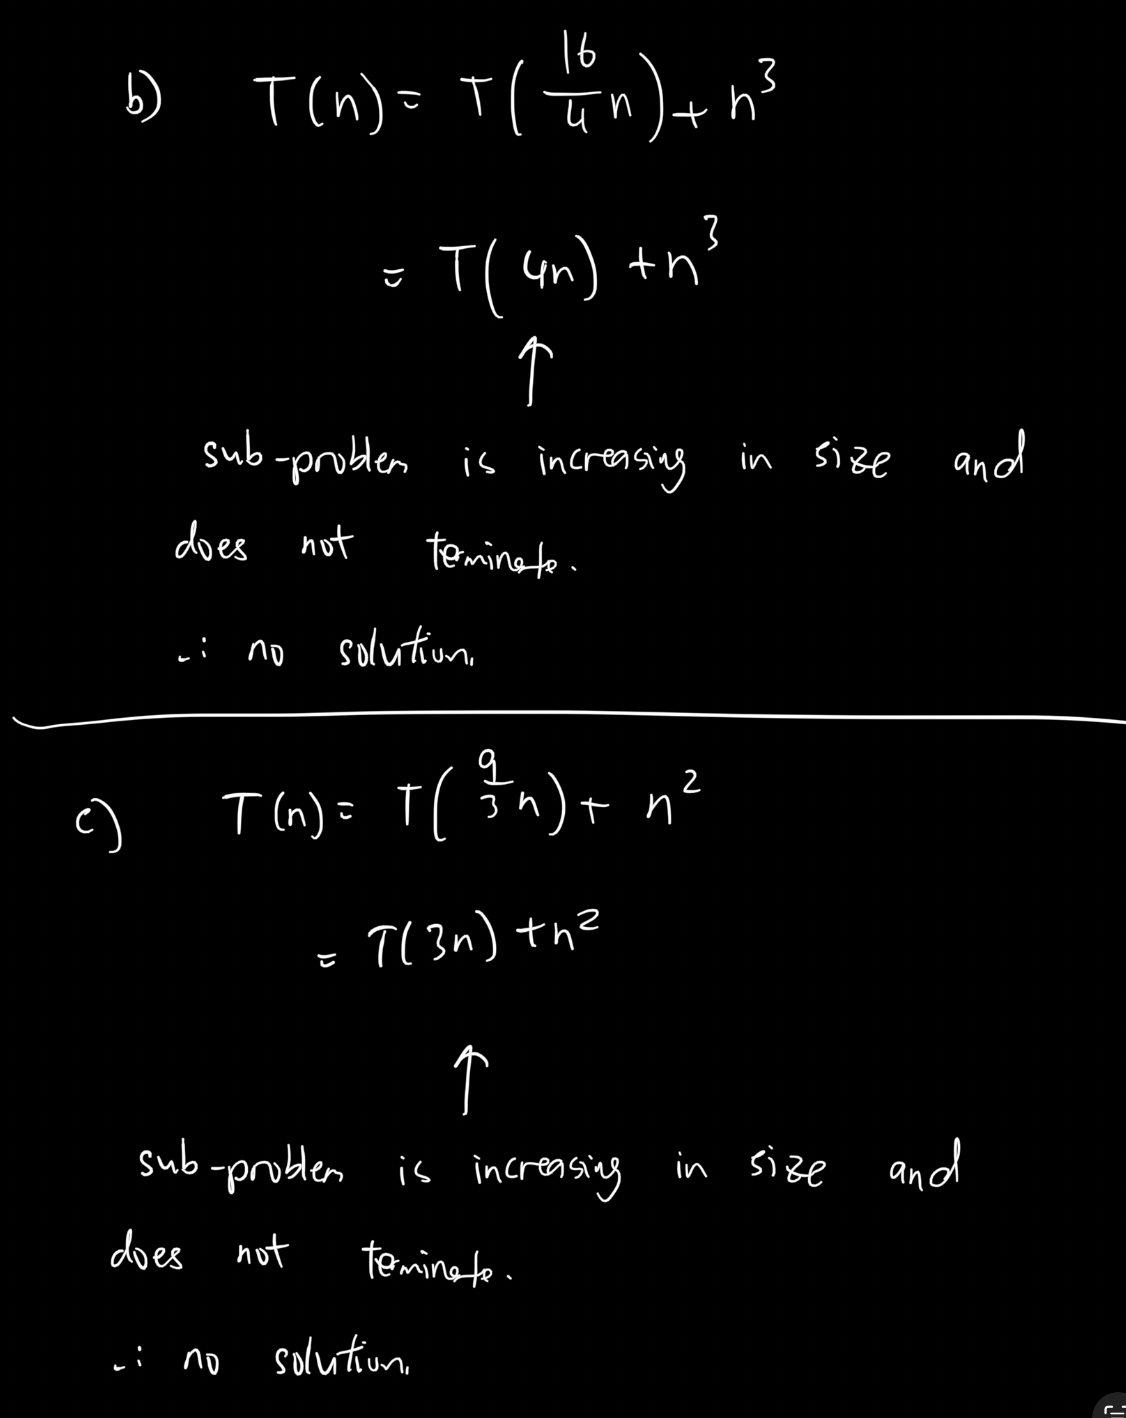 b) T(n) = T(16/4 n) + n³
= T(4n) + n³
↑
sub-problem is increasing in size and
does not teminate.
∴ no solution.
c) T(n) = T(9/3 n) + n²
= T(3n) + n²
↑
sub-problem is increasing in size and
does not teminate.
∴ no solution.